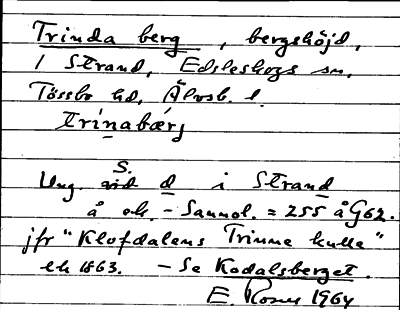 Trinda berg, bergshöjd,
i Strand, Edsleskogs sn,
Tössbo hd, Älvsb. l.
trinabærj
S.
Ung. vid d i Strand
å ek. - Sannol. = 255 å G62.
jfr "Klofdalens Trinne kulle"
ek 1863. - Se Kodalsberget.
E. 1964